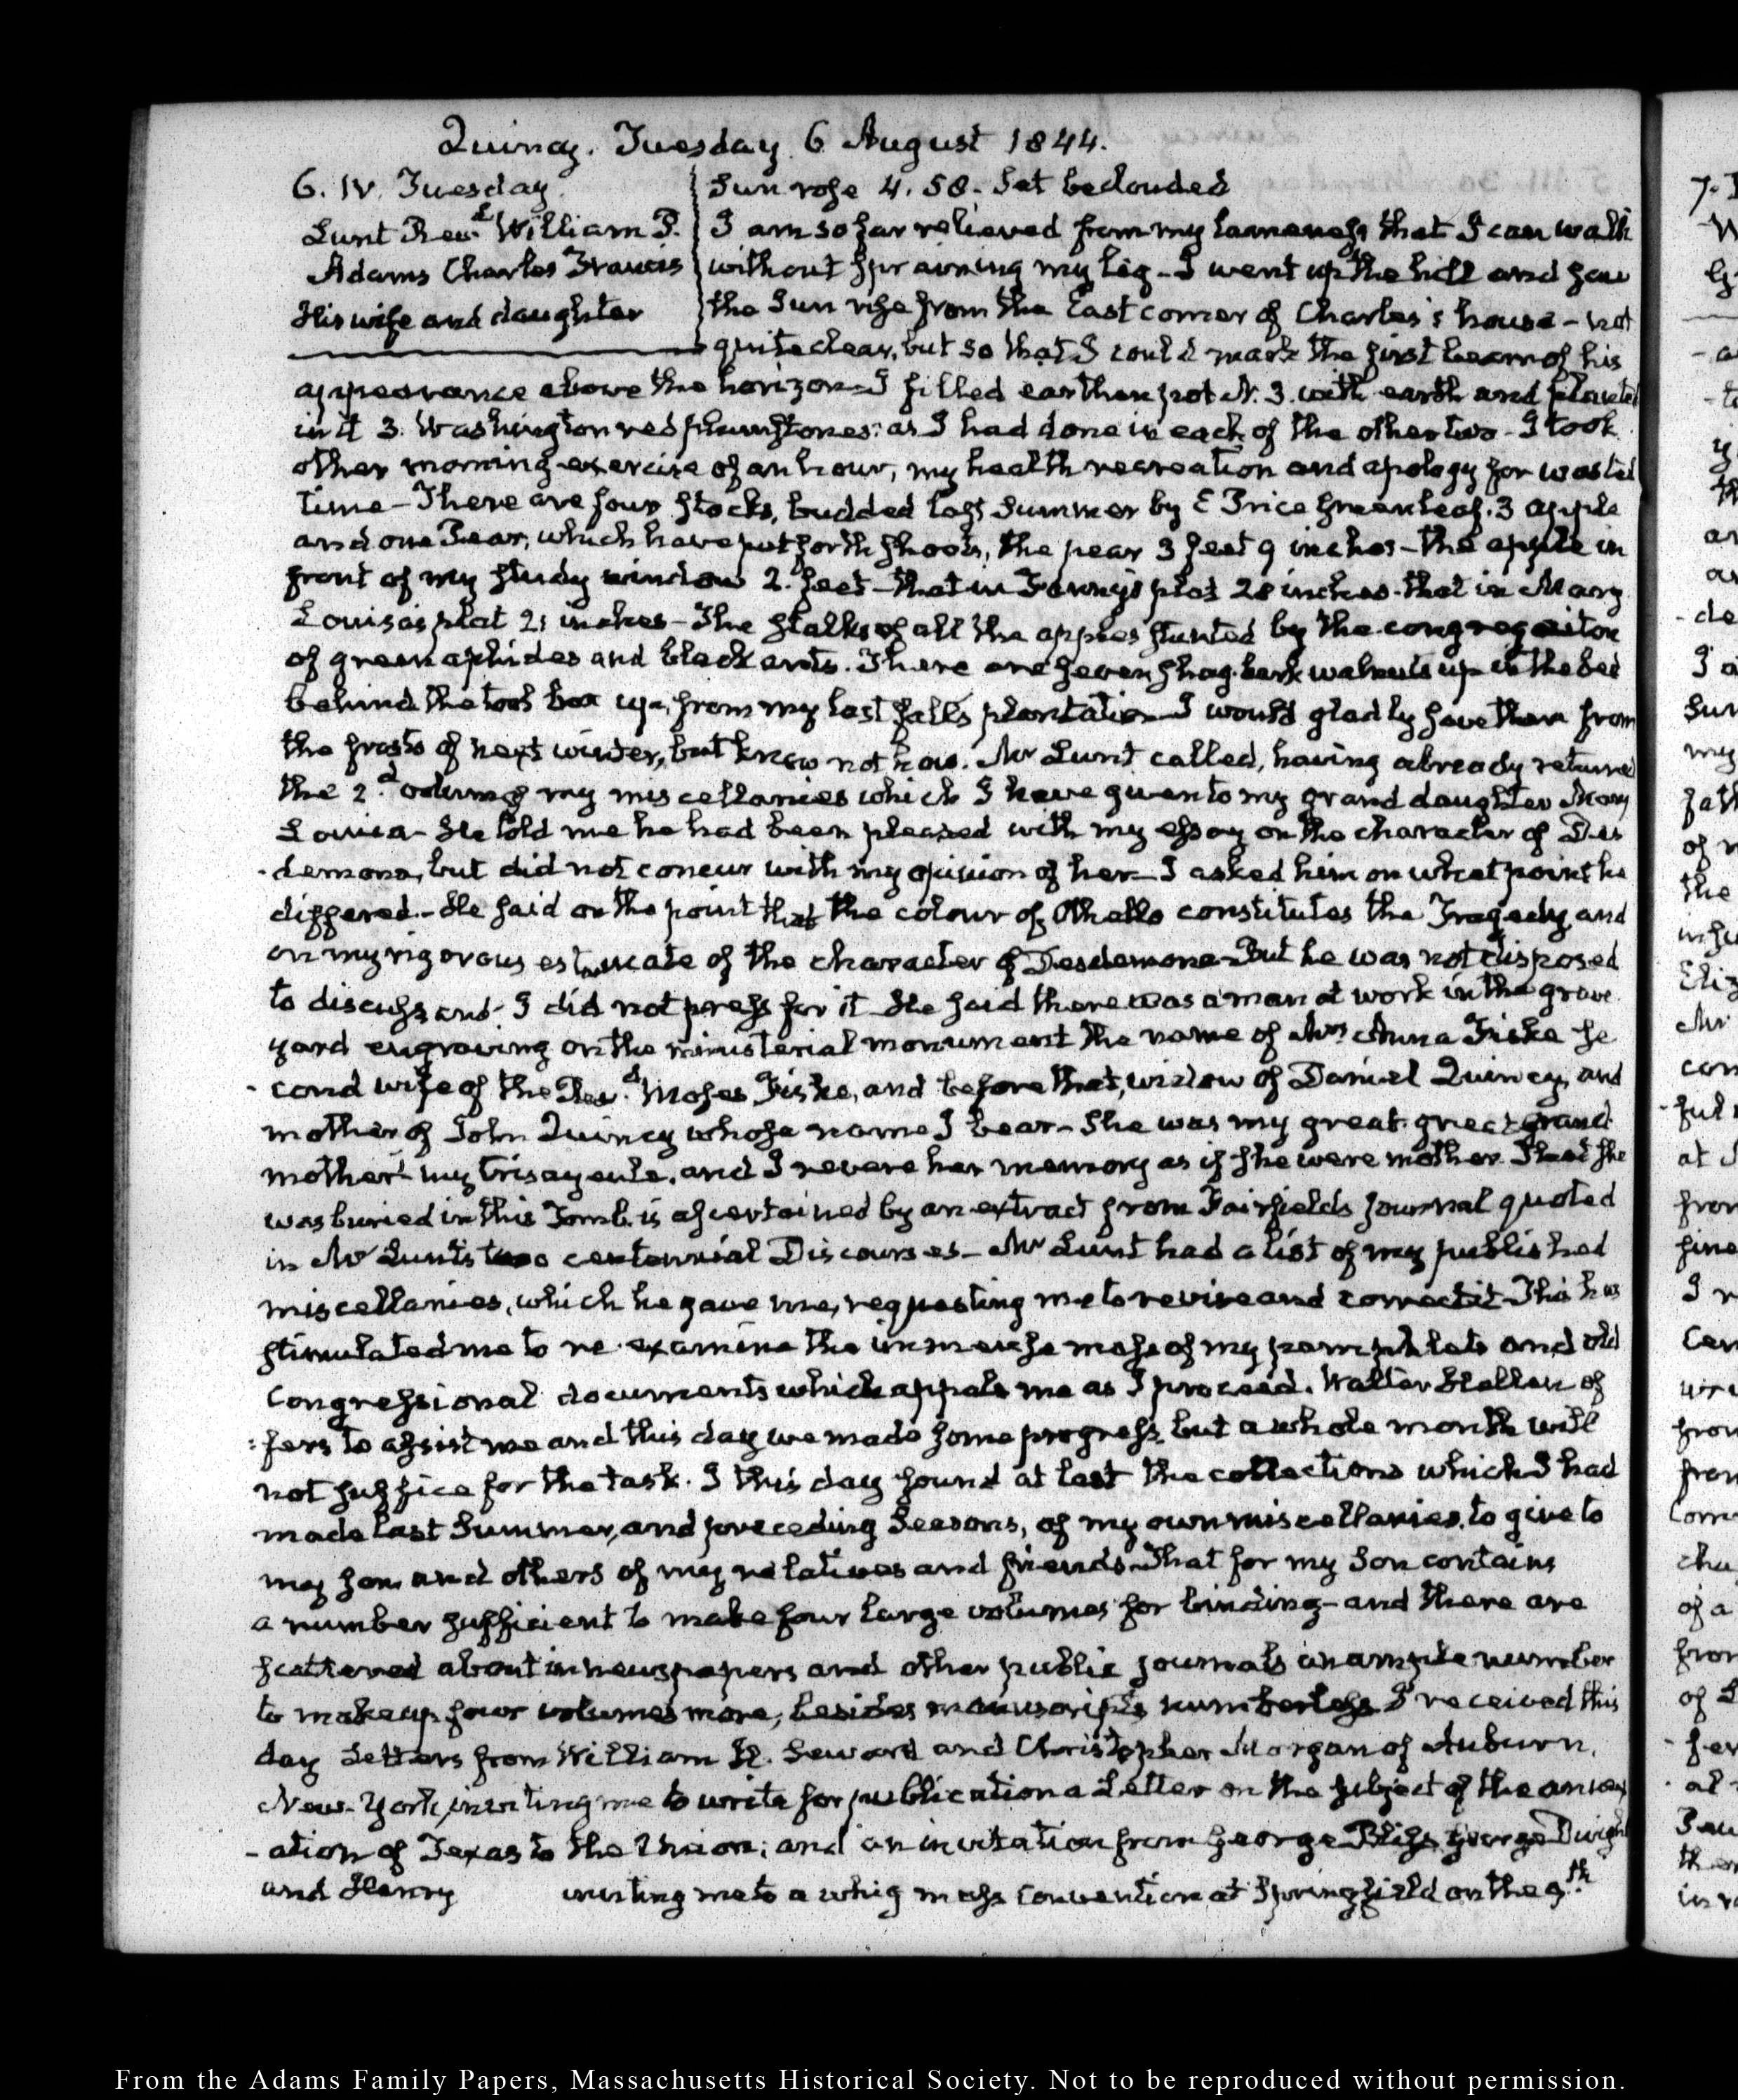 Quincy. Tuesday 6 August 1844.
6. IV. Tuesday.
Lunt Revd. William P.
Adams Charles Francis
His wife and daughter
Sun rose 4.58. Set beclouded
I am so far relieved from my lameness, that I can walk
without spraining my leg – I went up the hill and saw
the Sun rise from the East corner of Charles's house – not
quite clear, but so that I could mark the first beam of his
appearance above the horizon – I filled earthen pot N. 3. with earth and planted
in it 3. Washington red plumstones: as I had done in each of the other two – I took
other morning exercise of an hour, my health recreation and apology for wasted
time – There are four stocks, budded last Summer by E Price Greenleaf. 3 apple
and one Pear, which have put forth shoots, the pear 3 feet 9 inches – the apple in
front of my study window 2. feet – that in Fanny's plat 28 inches. that in Mary
Louisa's plat 21 inches – The stalks of all the apples stunted by the congregation
of green aphides and black ants. There are seven shag-bark walnuts up in the bed
behind the tool box up, from my last fall's plantation I would gladly save them from
the frosts of next winter, but know not how. Mr Lunt called, having already returned
the 2d. volume of my miscellanies which I have given to my grand daughter Mary
Louisa – He told me he had been pleased with my essay on the character of Des
demona, but did not concur with my opinion of her – I asked him on what point he
differed – He said on the point that the colour of Othello constitutes the Tragedy and
on my rigorous estimate of the character of Desdemona – But he was not disposed
to discuss, and I did not press for it He said there was a man at work in the grave
yard engraving on the ministerial monument the name of Mrs Anna Fiske se
cond wife of the Revd. Moses Fiske, and before that, widow of Daniel Quincy, and
mother of John Quincy whose name I bear – She was my great great grand
mother my trisayeule, and I revere her memory as if she were mother. That she
was buried in this Tomb is ascertained by an extract from Fairfields Journal quoted
in Mr Lunt's two centennial Discourses – Mr Lunt had a list of my published
miscellanies, which he gave me, requesting me to revise and correct it – This has
stimulated me to re-examine the immense mass of my pamphlets and old
Congressional documents which appals me as I proceed. Walter Hellen of
fers to assist me and this day we made some progress, but a whole month will
not suffice for the task. I this day found at last the collections which I had
made last Summer, and preceding Seasons, of my own miscellanies, to give to
my son and others of my relatives and friends – That for my Son contains
a number sufficient to make four large volumes for binding – and there are
scattered about in newspapers and other public journals an ample number
to make up four volumes more, besides manuscripts numberless I received this
day Letters from William H. Seward and Christopher Morgan of Auburn,
New-York, inviting me to write for publication a Letter on the subject of the annex
ation of Texas to the Union; and an invitation from George Bliss, George Dwight
and Henry inviting me to a whig mass Convention at Springfield on the 9th.
From the Adams Family Papers, Massachusetts Historical Society. Not to be reproduced without permission.